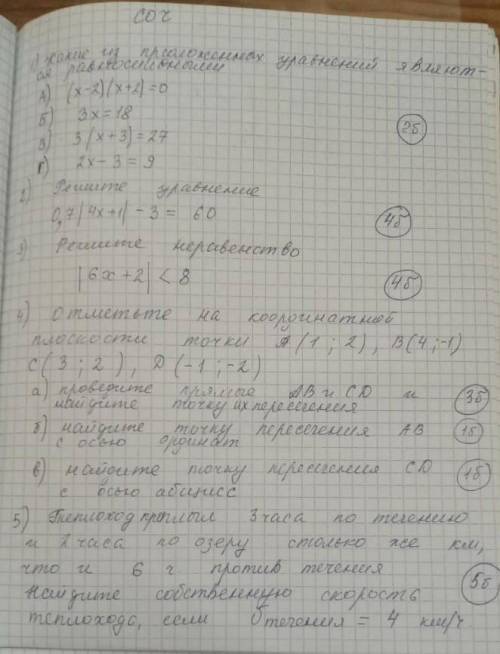 СОЧ
1) Какие из предложенных уравнений являют-
ся равносильными
А) (x-2)(x+2)=0
Б) 3x=18
В) 3(x+3)=27
Г) 2x-3=9
2б
2) Решите уравнение
0,7|4x+1| - 3 = 60
4б
3) Решите неравенство
|6x+2| < 8
4б
4) Отметьте на координатной
плоскости точки A(1; 2), B(4;-1)
C(3; 2), D(-1;-2)
а) проведите прямые AB и CD и
найдите точку их пересечения
3б
б) найдите точку пересечения AB
с осью ординат
1б
в) найдите точку пересечения CD
с осью абсцисс
1б
5) Теплоход проплыл 3 часа по течению
и 2 часа по озеру столько же км,
что и 6 ч против течения
Найдите собственную скорость
теплохода, если υтечения = 4 км/ч
5б